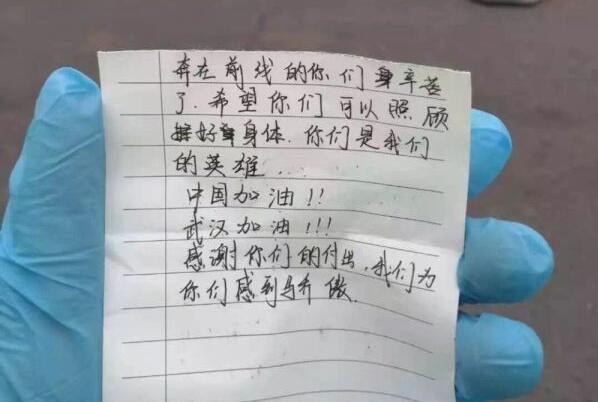 奔在前线的你们辛苦
了.希望你们可以照顾
好身体.你们是我们
的英雄...
中国加油!!
武汉加油!!!
感谢你们的付出,我们为
你们感到骄傲.